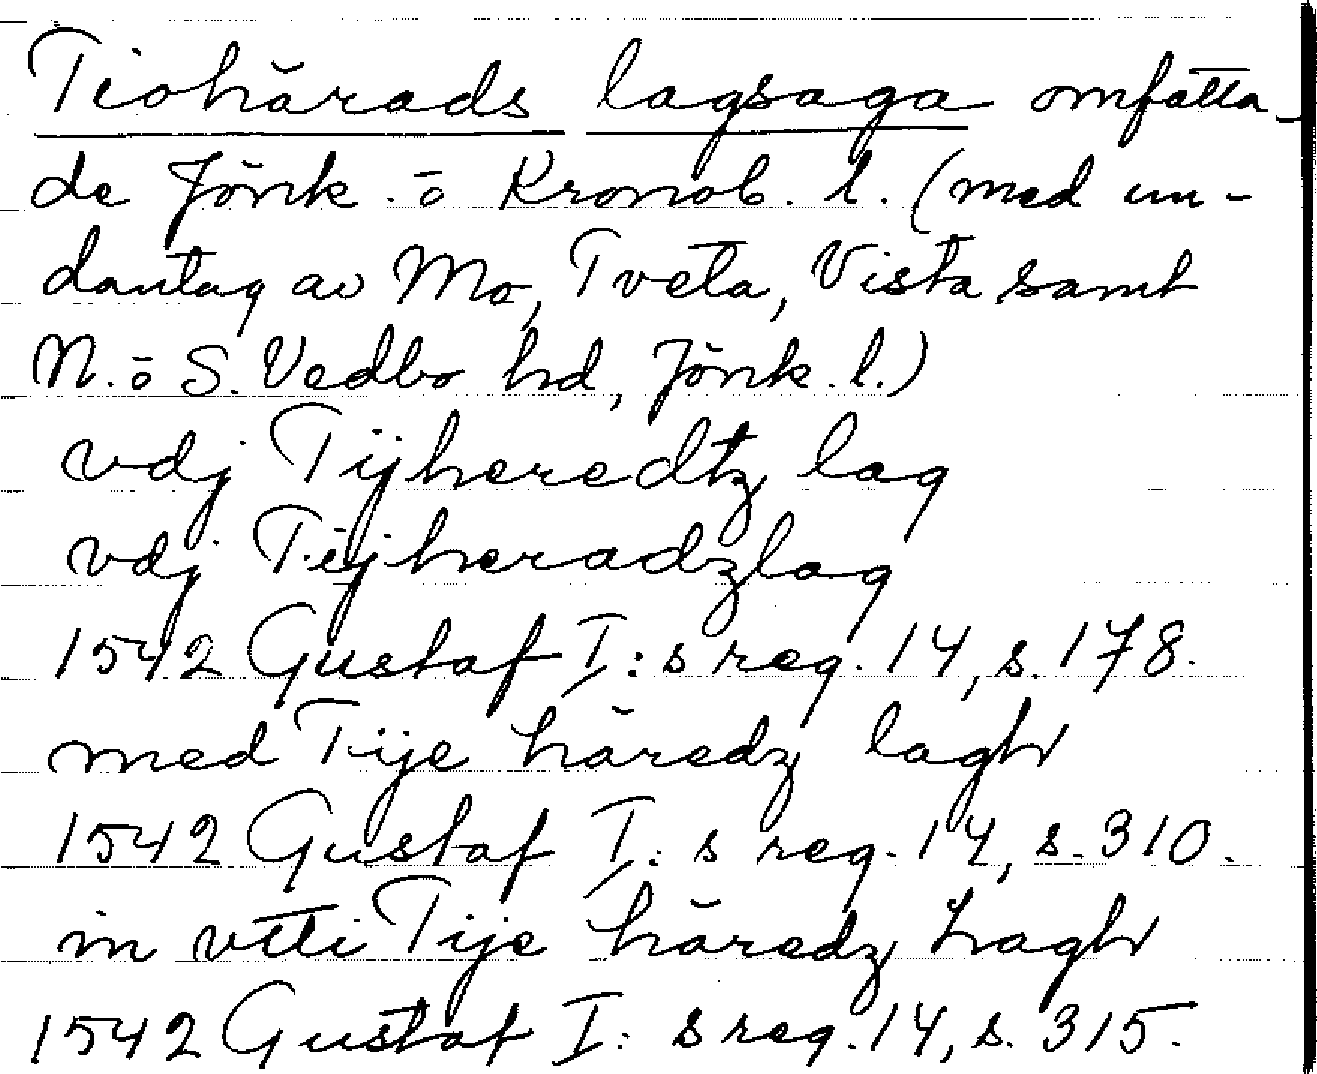 Tiohärads lagsaga omfatta-
de Jönk. o Kronob. l. (med un-
dantag av Mo, Tveta, Vista samt
N. o S. Vedbo hd, Jönk. l.)
vdj Tijheredtz lag
vdj Tijheradzlag
1542 Gustaf I:s reg. 14, s. 178.
med Tije häredz lagh
1542 Gustaf I:s reg. 14, s. 310.
in vtti Tije häredz Lagh
1542 Gustaf I:s reg. 14, s. 315.